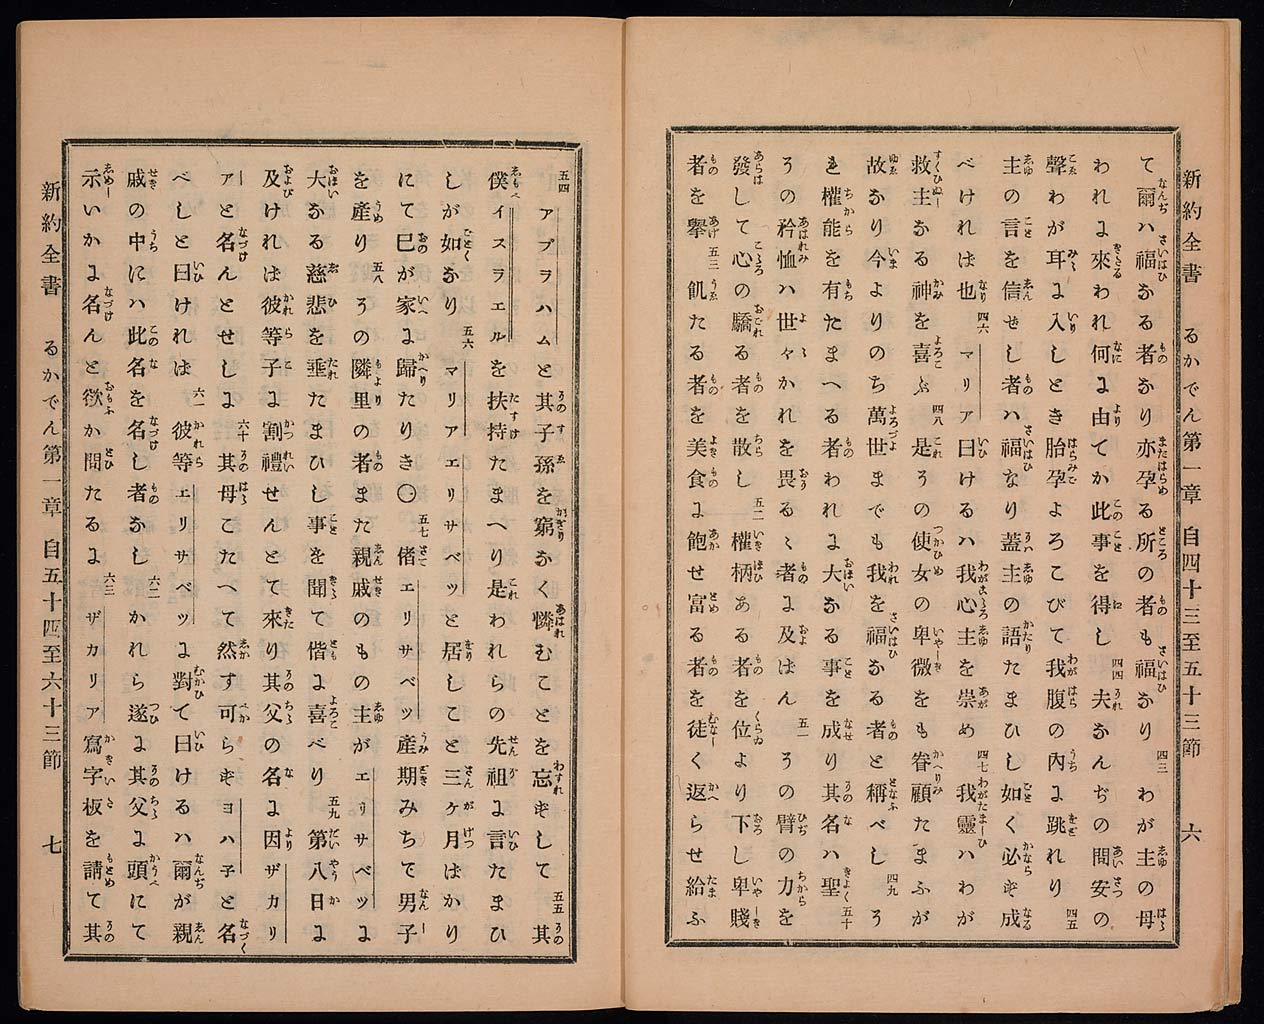 新約全書 るかでん第一章 自四十三至五十三節 六
て爾ハ福なる者なり亦孕る所の者も福なり 四三 わが主の母
われに來われ何に由てか此事を得し 四四 夫なんぢの問安の
聲わが耳に入しとき胎孕よろこびて我腹の內に跳れり 四五
主の言を信ぜし者ハ福なり蓋主の語たまひし如く必ず成
べければ也 四六 マリア曰けるハ我心主を崇め 四七 我靈ハわが
救主なる神を喜ぶ 四八 是その使女の卑微をも眷顧たまふが
故なり今よりのち萬世までも我を福なる者と稱べし 四九 そ
れ權能を有たまへる者われに大なる事を成り其名ハ聖 五十
その矜恤ハ世々かれを畏るゝ者に及ばん 五一 その臂の力を
發して心の驕る者を散し 五二 權柄ある者を位より下し卑賤
者を擧 五三 飢たる者を美食に飽せ富る者を徒く返らせ給ふ
五四 アブラハムと其子孫を窮なく憐むことを忘ずして 五五 其
僕イスラエルを扶持たまへり是われらの先祖に言たまひ
しが如なり 五六 マリアエリサベツと居しこと三ケ月ばかり
にて己が家に歸たりき〇 五七 偖エリサベツ產期みちて男子
を產り 五八 その隣里の者また親戚のもの主がエリサベツに
大なる慈悲を垂たまひし事を聞て偕に喜べり 五九 第八日に
及ければ彼等子に割禮せんとて來り其父の名に因ザカリ
アと名んとせしに 六十 其母こたへて然す可らずヨハ子と名
べしと曰ければ 六一 彼等エリサベツに對て曰けるハ爾が親
戚の中にハ此名を名し者なし 六二 かれら遂に其父に頭にて
示いかに名んと欲か問たるに 六三 ザカリア寫字板を請て其
新約全書 るかでん第一章 自五十四至六十三節 七